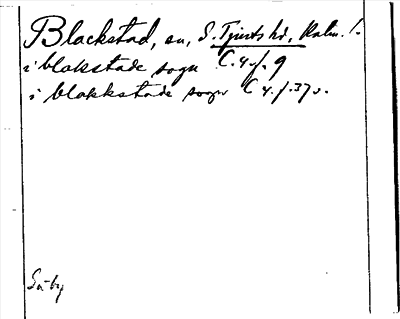 Blackstad, sn, S. Tjusts hd, Kalm. l.
i blakstade sogn C. 4. f. 9
i blakkstade sogn C 4. f. 37 v.
Sä-by